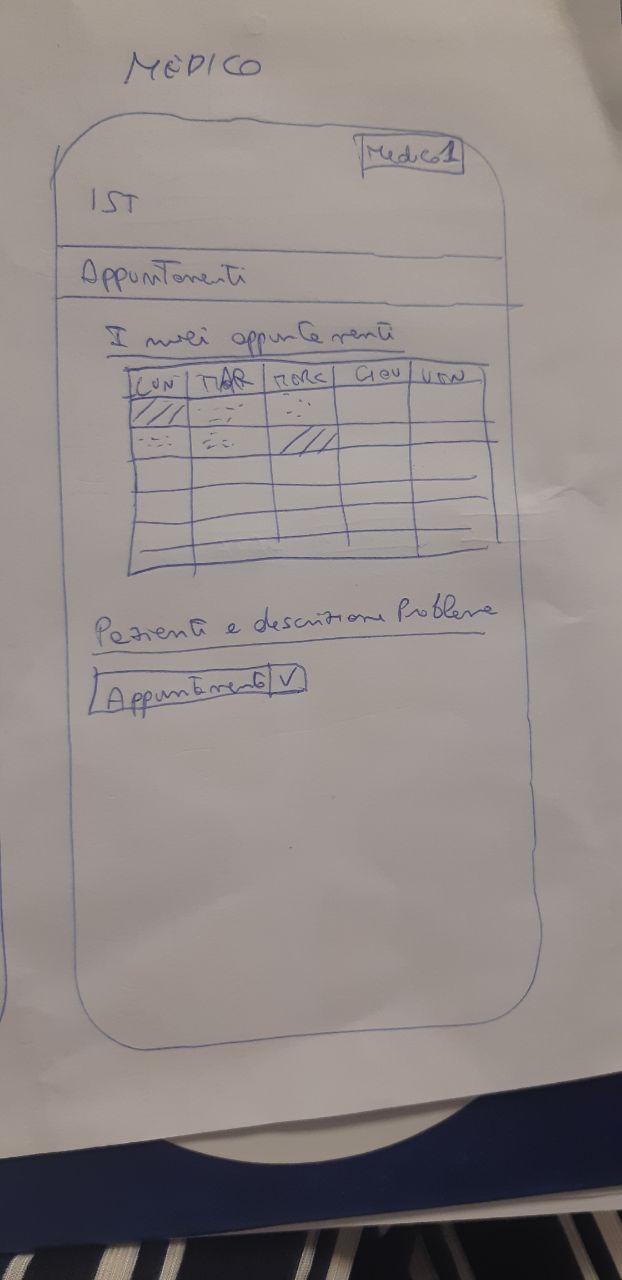 MEDICO
Medico1
IST
Appuntamenti
I miei appuntamenti
LUN MAR MERC GIOV VEN
Pazienti e descrizione Problema
Appuntamento V